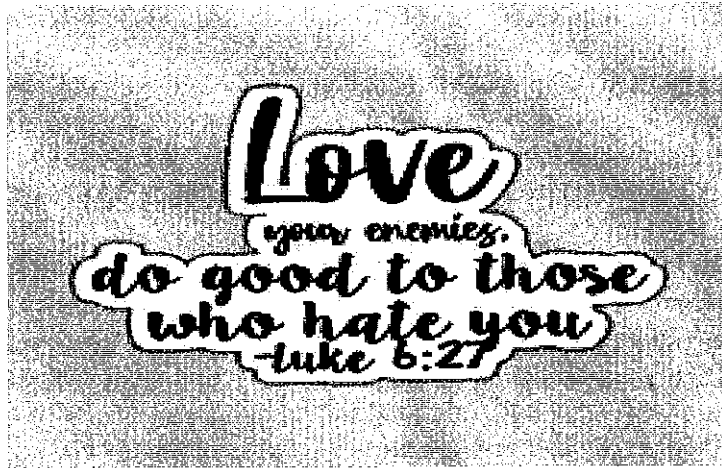 Love
your enemies,
do good to those
who hate you
-Luke 6:27